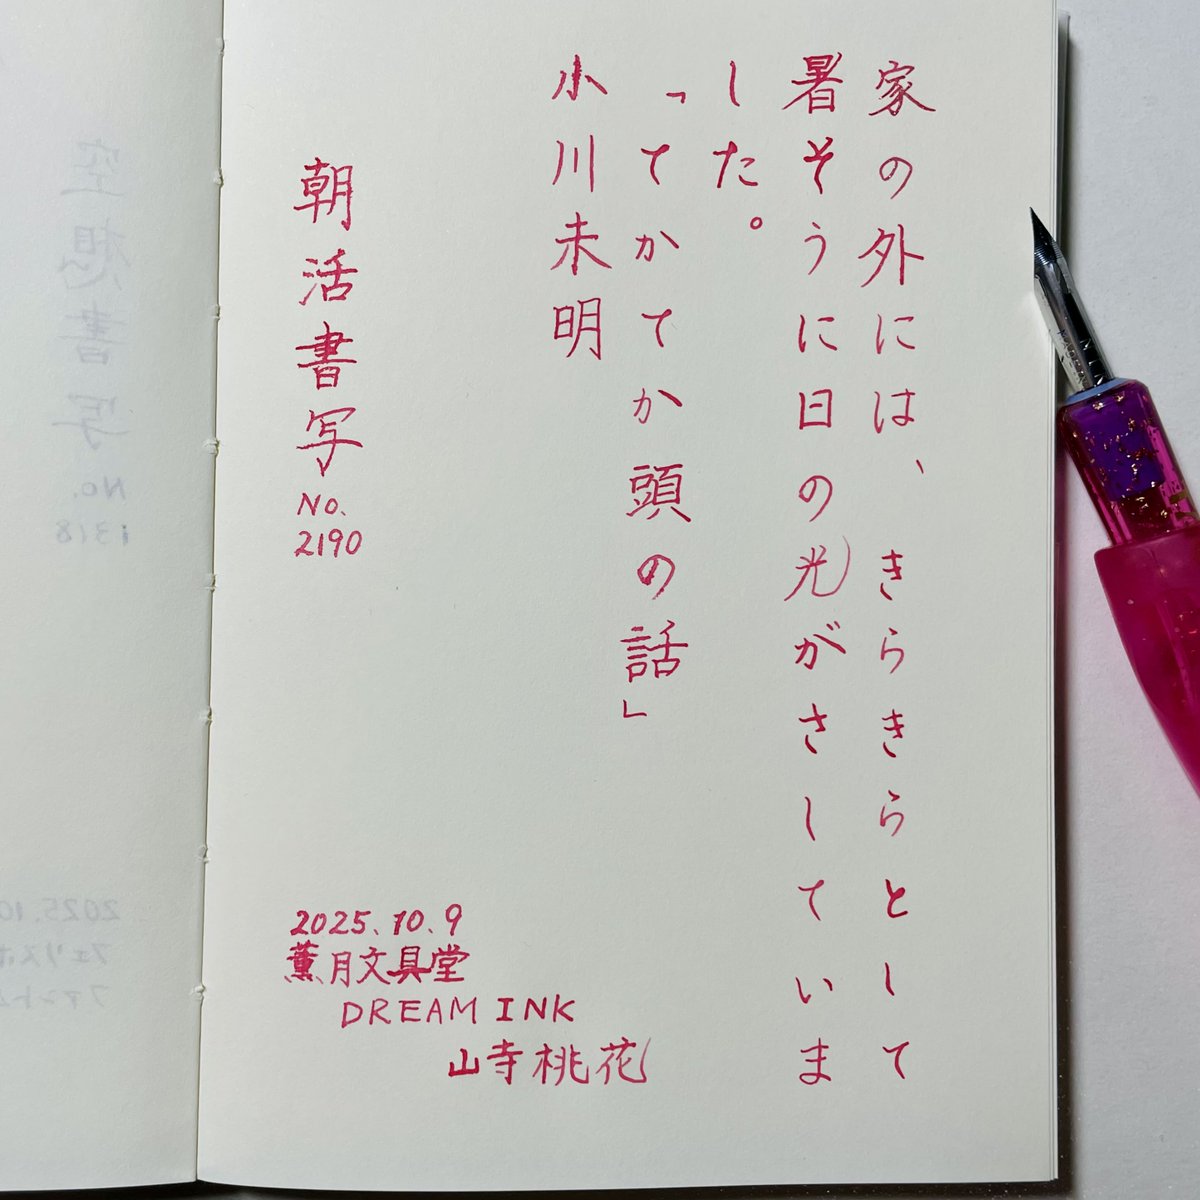 家の外には、きらきらとして
暑そうに日の光がさしていま
した。
「てかてか頭の話」
小川未明
朝活書写
No.
2190
2025.10.9
薫月文具堂
DREAM INK
山寺桃花
空想書写
No.
1318
2025.10
フェリスホ
ファント